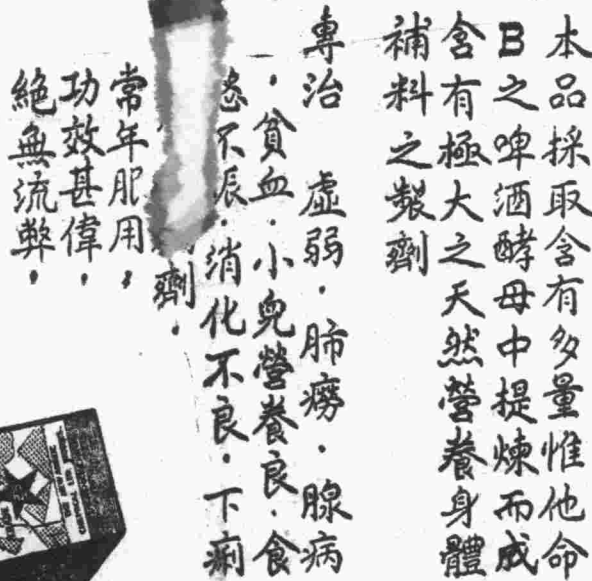 本品採取含有多量惟他命
B之啤酒酵母中提煉而成
含有極大之天然營養身體
補料之製劑
專治 虛弱．肺癆．腺病
．貧血．小兒營養良．食
慾不辰．消化不良．下痢
劑．
常年服用，
功效甚偉，
絕無流弊，